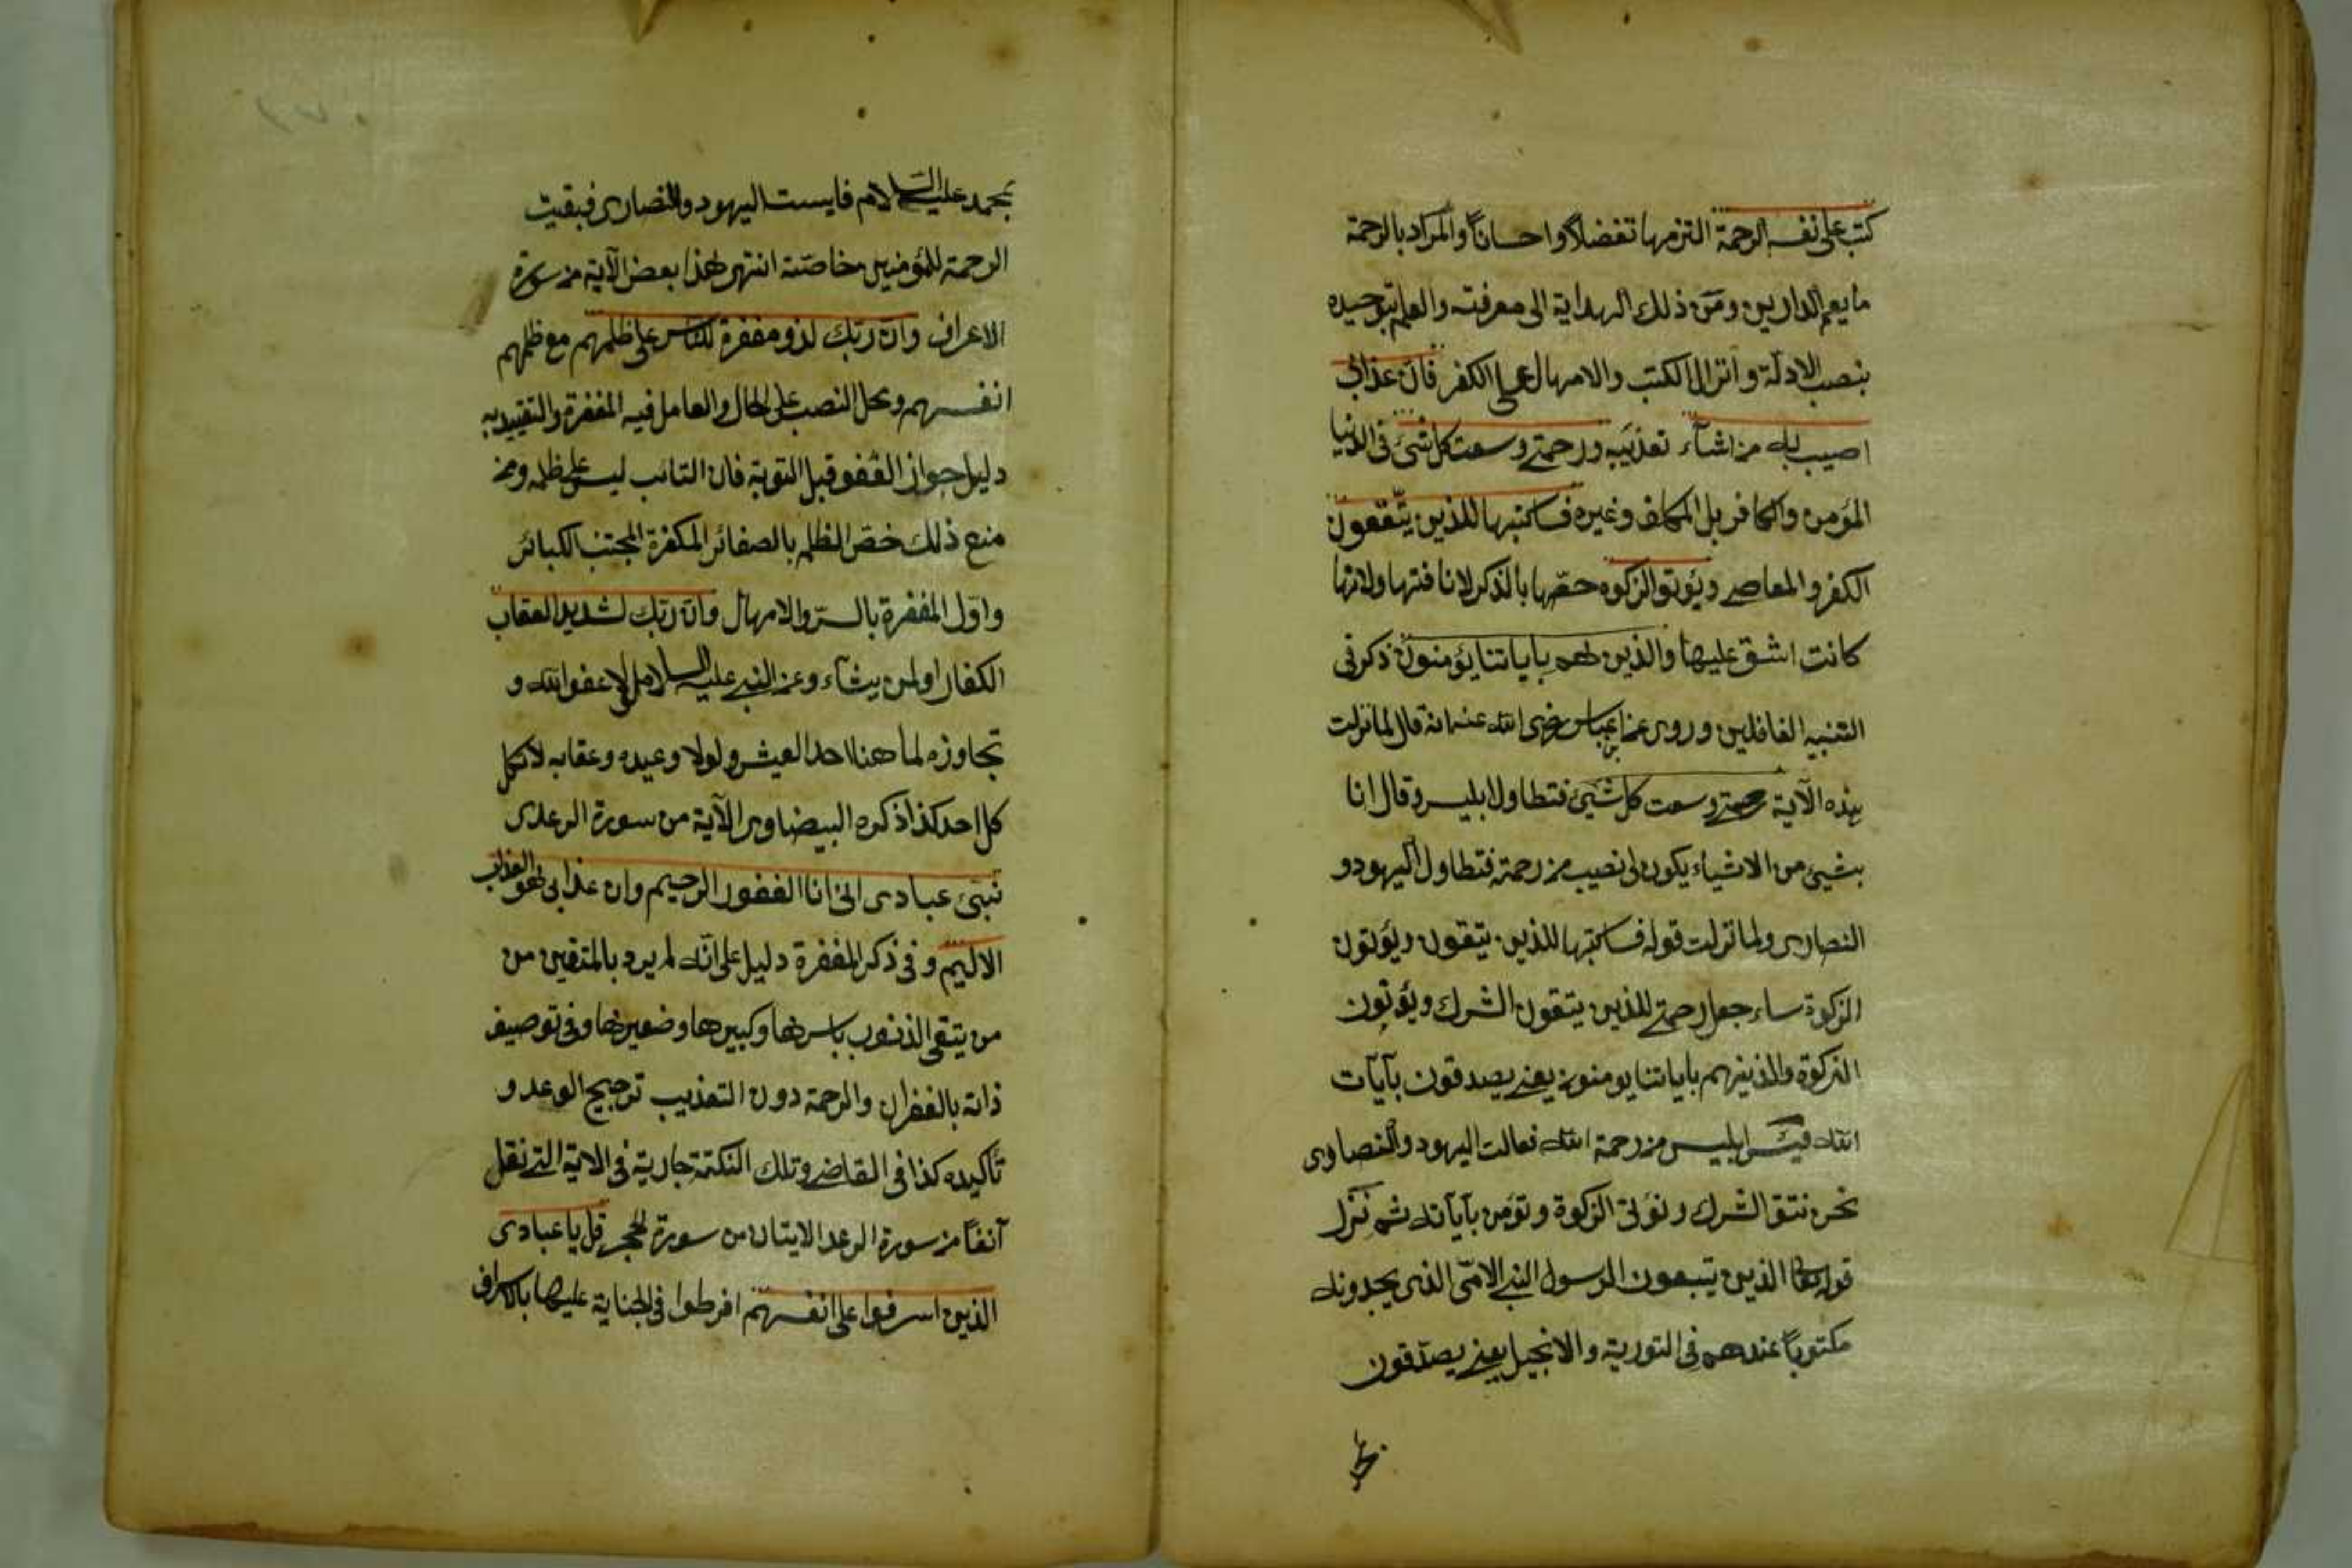 كتب على نفسه الرحمة التزمها تفضلاً واحساناً والمراد بالرحمة
ما يعم الدارين ومن ذلك الهداية الى معرفته والعلم بتوحيده
بنصب الادلة وانزال الكتب والامهال على الكفر فان عذابى
اصيب به من اشآء تعذيبه ورحمتى وسعت كل شئ فى الدنيا
المؤمن والكافر بل المكلف وغيره فساكتبها للذين يتّقون
الكفر والمعاصى ويؤتو الزكوه خصّها بالذكر لانافتها ولانها
كانت اشق عليها والذين هم باياتنا يؤمنون ذكر فى
التنبيه الغافلين وروى عن ابن عباس رضى الله عنه انه قال لما نزلت
هذه الآية رحمتى وسعت كل شئ فتطاول ابليس وقال انا
بشئ من الاشياء يكون لى نصيب من رحمته فتطاول اليهود و
النصارى ولما نزلت قوله فساكتبها للذين يتقون ويؤتون
الزكوة ساء جعل رحمتى للذين يتقون الشرك ويؤتون
الزكوة والذينهم باياتنا يومنون يعنى يصدقون بآيات
الله فيئس ابليس من رحمة الله فعالت اليهود والنصاوى
نحن نتق الشرك ونؤتى الزكوة ونؤمن بآياته ثم نزل
قوله تعا الذين يتبعون الرسول النبى الامّى الذى يجدونه
مكتوباً عندهم فى التورية والانجيل يعنى يصدّقون
بمحمد عليه السلام فايست اليهود والنصارى فبقيت
الرحمة للمؤمنين خاصّة انتهى هذا بعض الآية من سورة
الاعراف وان ربك لذو مغفرة للناس على ظلمهم مع ظلمهم
انفسهم ومحل النصب على الحال والعامل فيه المغفرة والتقييد به
دليل جواز العفو قبل التوبة فان التائب ليس على ظلمه ومن
منع ذلك خصّ الظلم بالصغائر المكفرة لمجتنب الكبائر
واوّل المغفرة بالستر والامهال وان ربك لشديد العقاب
الكفار او لمن يشآء وعن النبى عليه السلام لولا عفو الله و
تجاوزه لما هنا احد العيش ولولا وعيده وعقابه لاتكل
كل احد كذا ذكره البيضاوى الآية من سورة الرعدى
نبّئ عبادى انى انا الغفور الرحيم وان عذابى هو العذاب
الاليم وفى ذكر المغفرة دليل على انّه لم يرد بالمتقين من
من يتقى الذنوب باسرها وكبيرها وصغيرها وفى توصيف
ذاته بالغفران والرحمة دون التعذيب ترجيح الوعد و
تأكيده كذا فى القاضى وتلك النكتة جارية فى الاية التى نقل
آنفاً من سورة الرعد الايتان من سورة الحجر قل يا عبادى
الذين اسرفوا على انفسهم افرطوا فى الجناية عليها بالاسراف